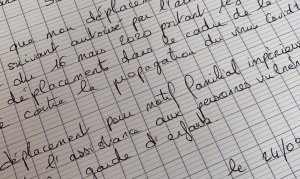 que mon déplacement
suivant autorisé par l'
du 16 mars 2020 portant
déplacements dans le cadre de la
contre la propagation du virus Covid
déplacement pour motif familial impérieux
l'assistance aux personnes vulné
garde d'enfants.
le 24/0